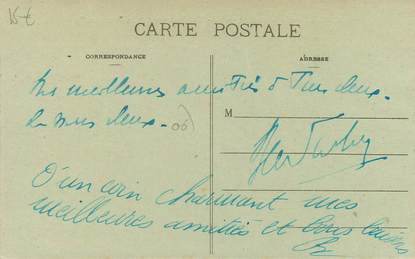 15 €
CARTE POSTALE
CORRESPONDANCE
ADRESSE
Nos meilleures amitiés à Tous deux.
de nous deux.
(06)
M
D'un coin charmant mes
meilleures amitiés et bons baisers